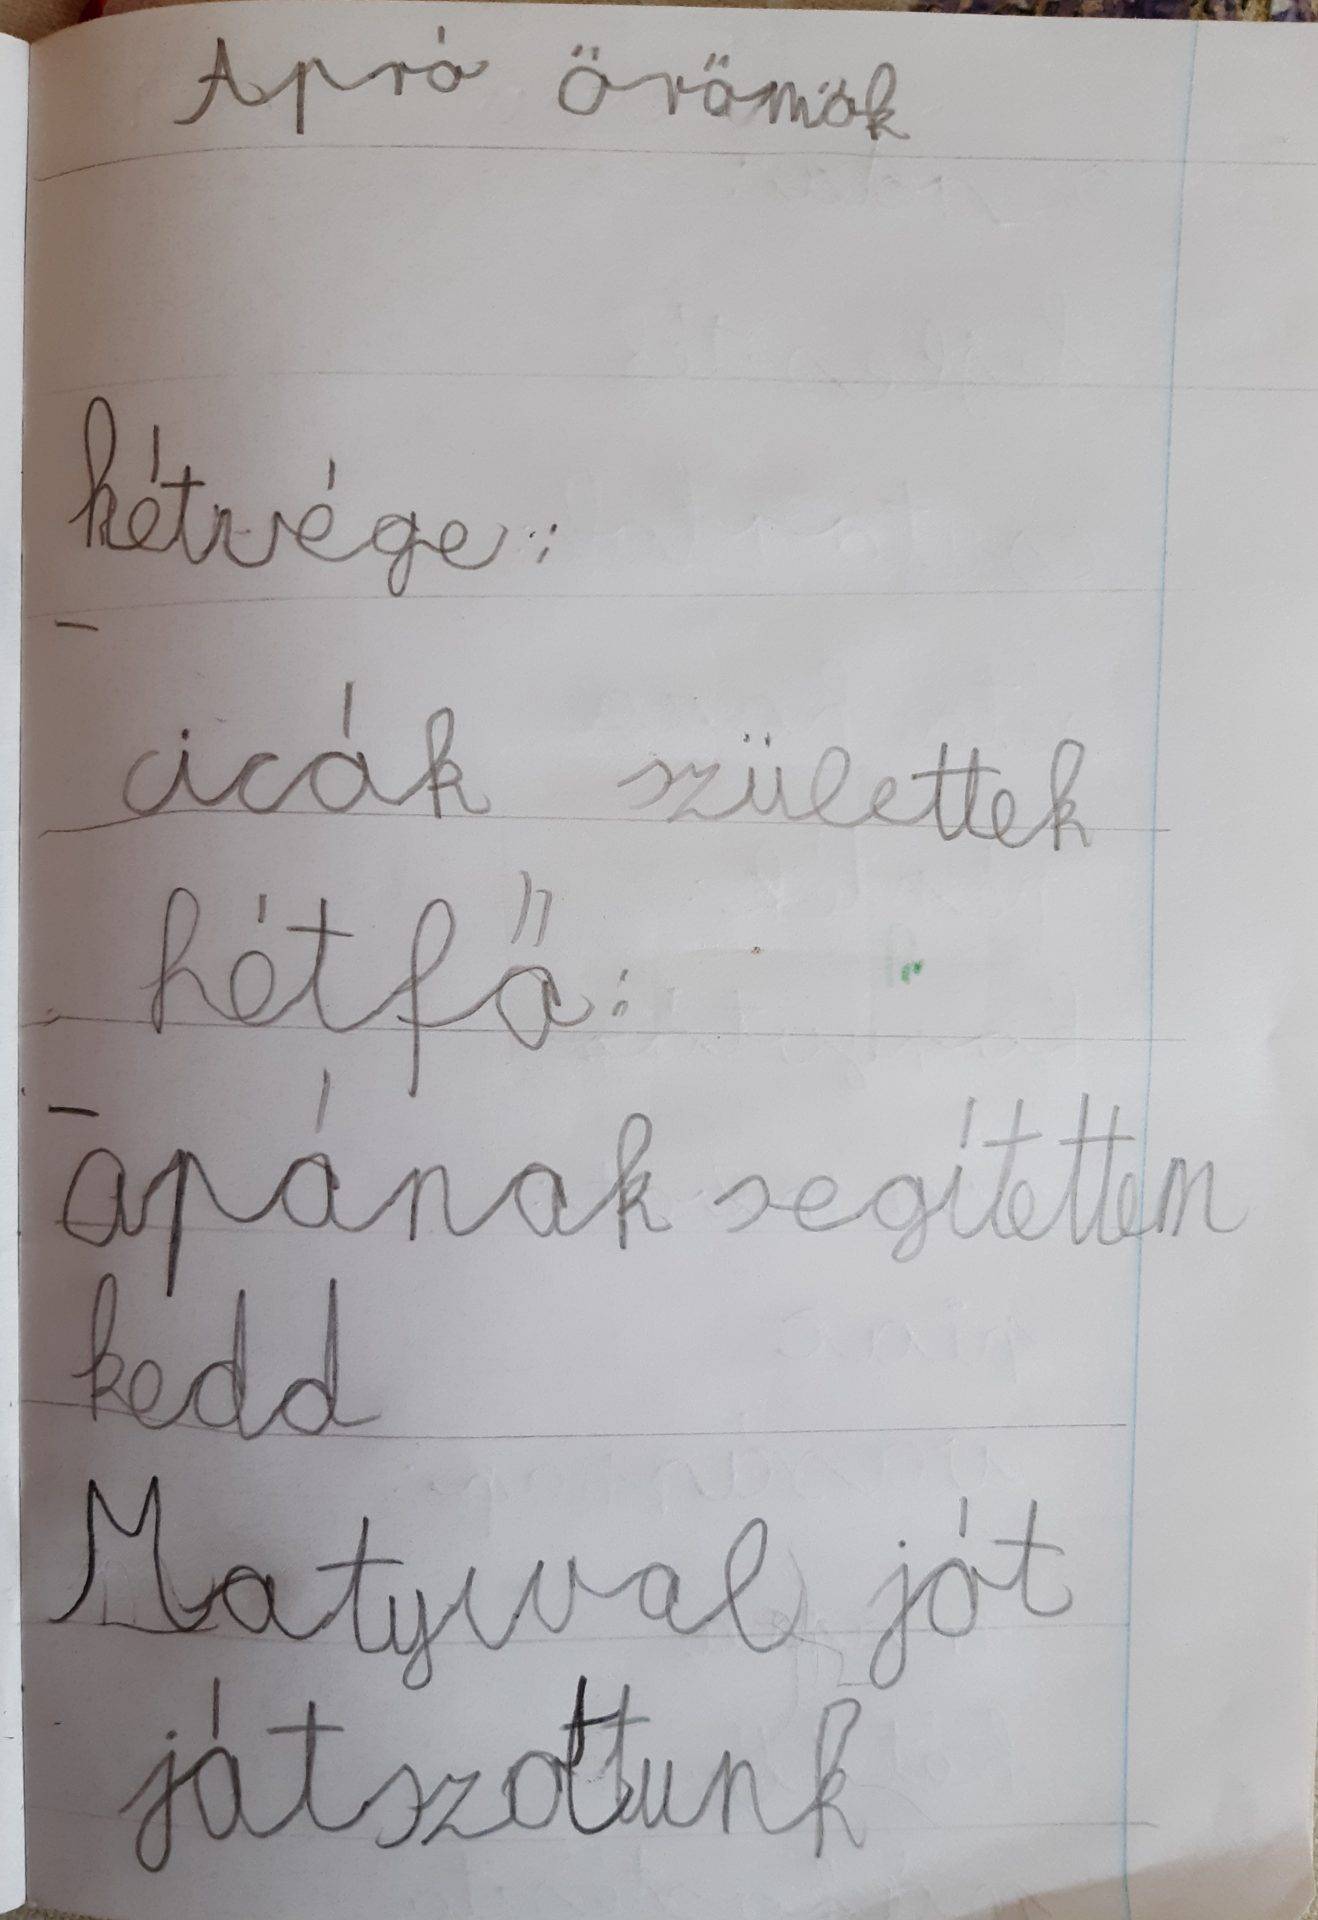 Apró örömök
kétvége:
-
cicák születtek
hétfő:
-
apának segítettem
kedd
Matyival jót
játszottunk